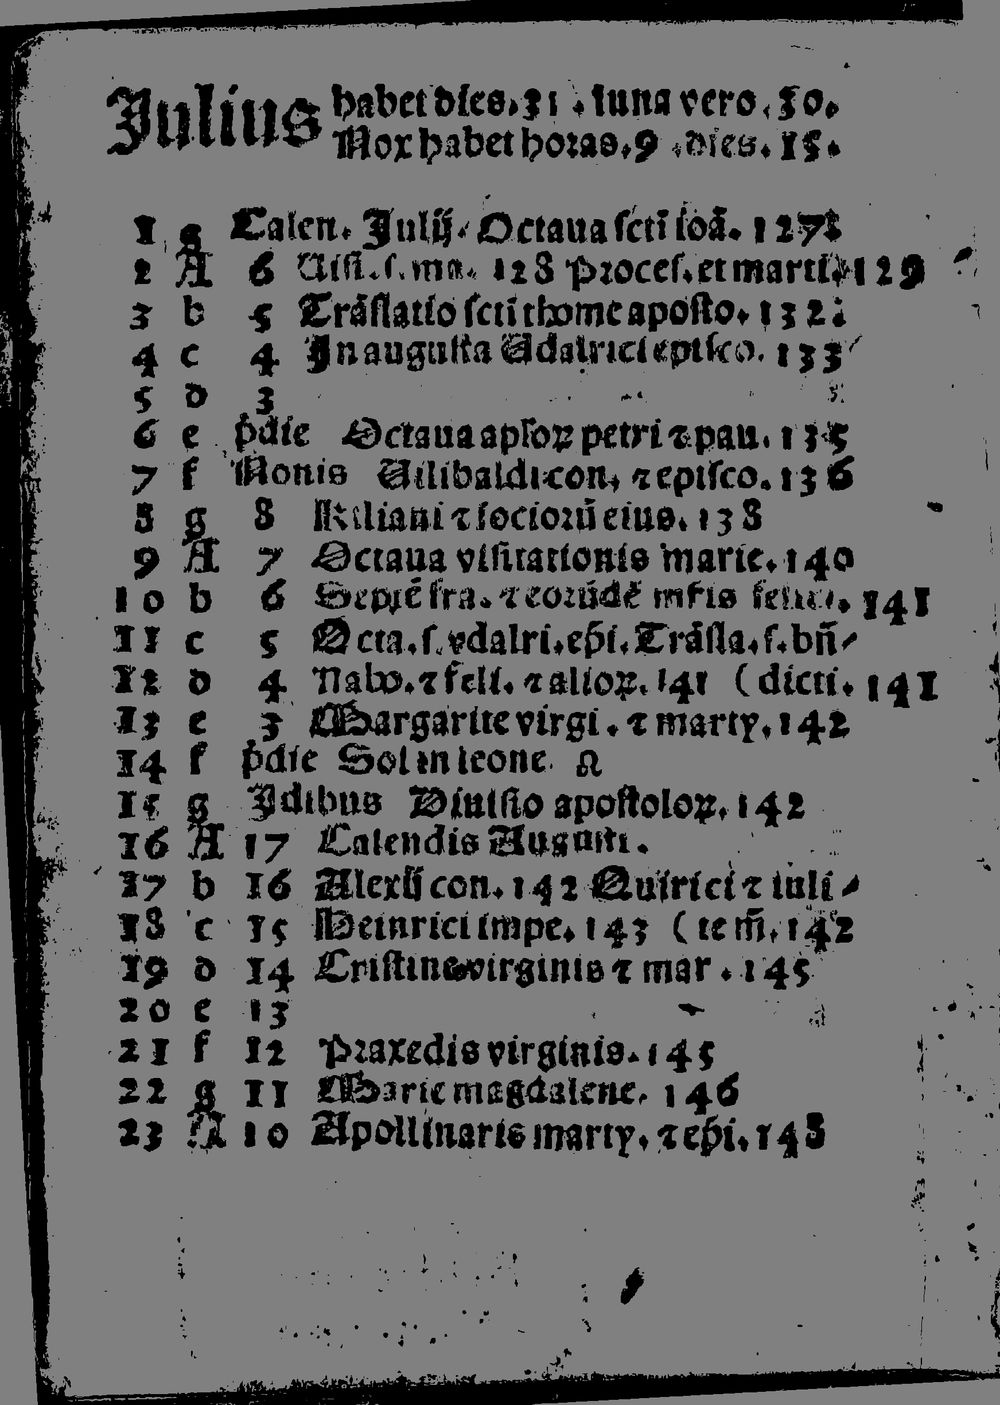 Julius habet dies. 31. luna vero. 30.
Nox habet horas. 9. dies. 15.
1 g Calen. Julij. Octaua scti ioā. 127
2 A 6 Uisi. s. ma. 128 Proces. et marti. 129
3 b 5 Trāslatio scti thome aposto. 132
4 c 4 In augusta Udalrici episco. 133
5 d 3
6 e p̄die Octaua apłoꝝ petri ⁊ pau. 135
7 f Nonis Uilibaldi con, ⁊ episco. 136
8 g 8 Kiliani ⁊ socioꝝ eius. 138
9 A 7 Octaua visitationis marie. 140
10 b 6 Septē fra. ⁊ eorūdē 141
11 c 5 Octa. s. vdalri. ep̄i. Trāsla. s. bn̄⸗
12 d 4 Nabo. ⁊ feli. ⁊ alioꝝ. 141 ( dicti. 141
13 e 3 Margarite virgi. ⁊ marty. 142
14 f p̄die Sol in leone. ♌
15 g Idibus Diuisio apostoloꝝ. 142
16 A 17 Calendis Augusti.
17 b 16 Alexij con. 142 Quirici ⁊ iuli⸗
18 c 15 Heinrici impe. 143 ( te m̄. 142
19 d 14 Cristine virginis ⁊ mar. 145
20 e 13
21 f 12 Praxedis virginis. 145
22 g 11 Marie magdalene. 146
23 A 10 Apollinaris marty. ⁊ ep̄i. 148